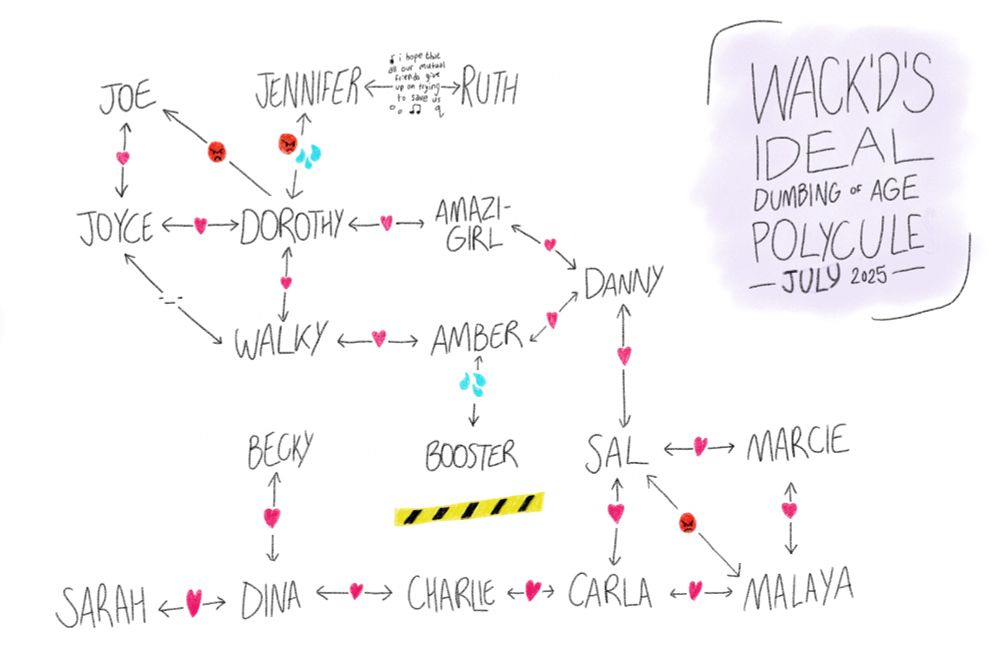 WACK'D'S
IDEAL
DUMBING OF AGE
POLYCULE
— JULY 2025 —
JOE
JENNIFER
♪ i hope that
all our mutual
friends give
up on trying
to save us
♫
RUTH
JOYCE
DOROTHY
AMAZI-
GIRL
DANNY
-_-
WALKY
AMBER
BECKY
BOOSTER
SAL
MARCIE
SARAH
DINA
CHARLIE
CARLA
MALAYA